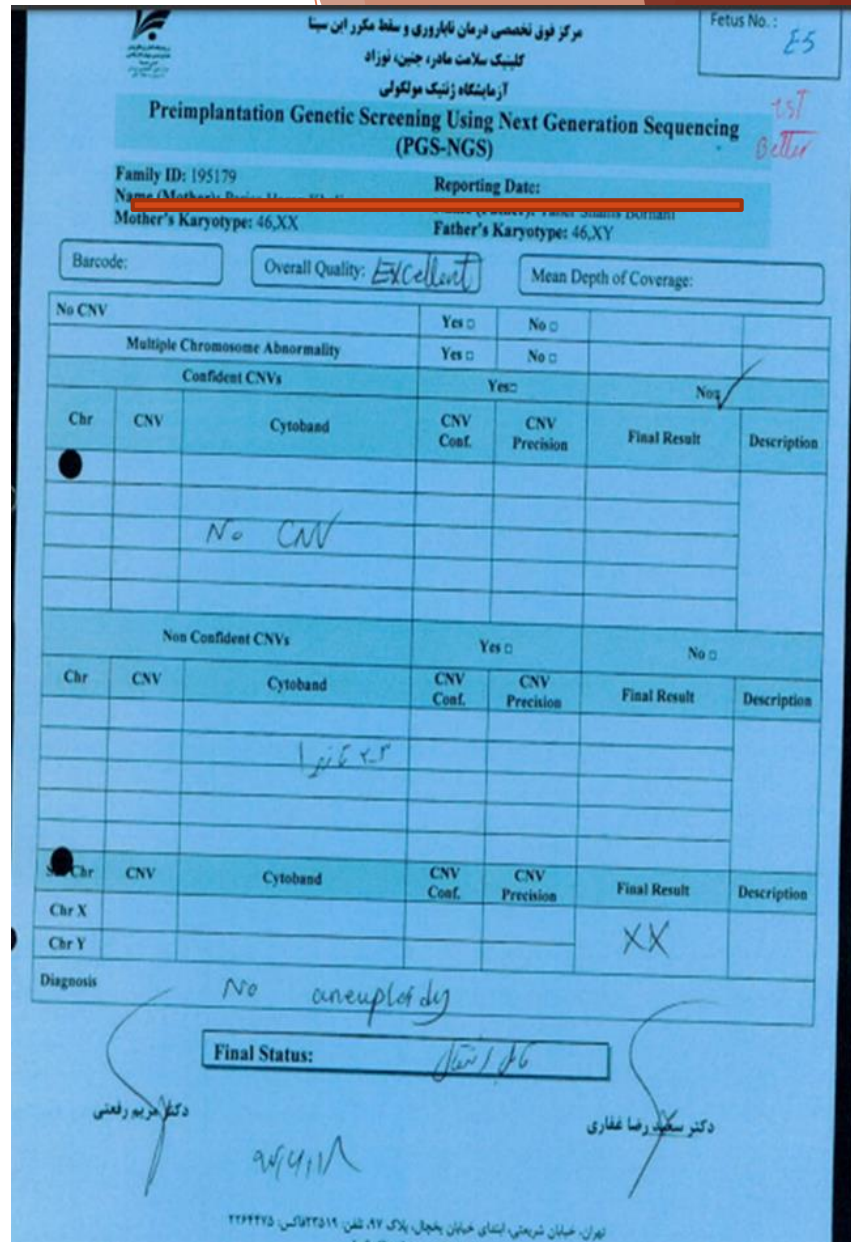 مرکز فوق تخصصی درمان ناباروری و سقط مکرر ابن سینا
Fetus No. :
E5
کلینیک سلامت مادر، جنین، نوزاد
آزمایشگاه ژنتیک مولکولی
1st
Better
Preimplantation Genetic Screening Using Next Generation Sequencing
(PGS-NGS)
Family ID: 195179
Reporting Date:
Mother's Karyotype: 46,XX
Father's Karyotype: 46,XY
Barcode:
Overall Quality: Excellent
Mean Depth of Coverage:
No CNV Yes □ No □
Multiple Chromosome Abnormality Yes □ No □
Confident CNVs Yes□ No□ ✓
Chr CNV Cytoband CNV Conf. CNV Precision Final Result Description
No CNV
Non Confident CNVs Yes □ No □
Chr CNV Cytoband CNV Conf. CNV Precision Final Result Description
Chr CNV Cytoband CNV Conf. CNV Precision Final Result Description
Chr X
XX
Chr Y
Diagnosis No aneuploidy
Final Status: قابل انتقال
دکتر مریم رفعتی
دکتر سعید رضا غفاری
تهران، خیابان شریعتی، ابتدای خیابان یخچال، پلاک ۹۷، تلفن: ۲۳۵۱۹ فاکس: ۲۲۶۴۴۷۵